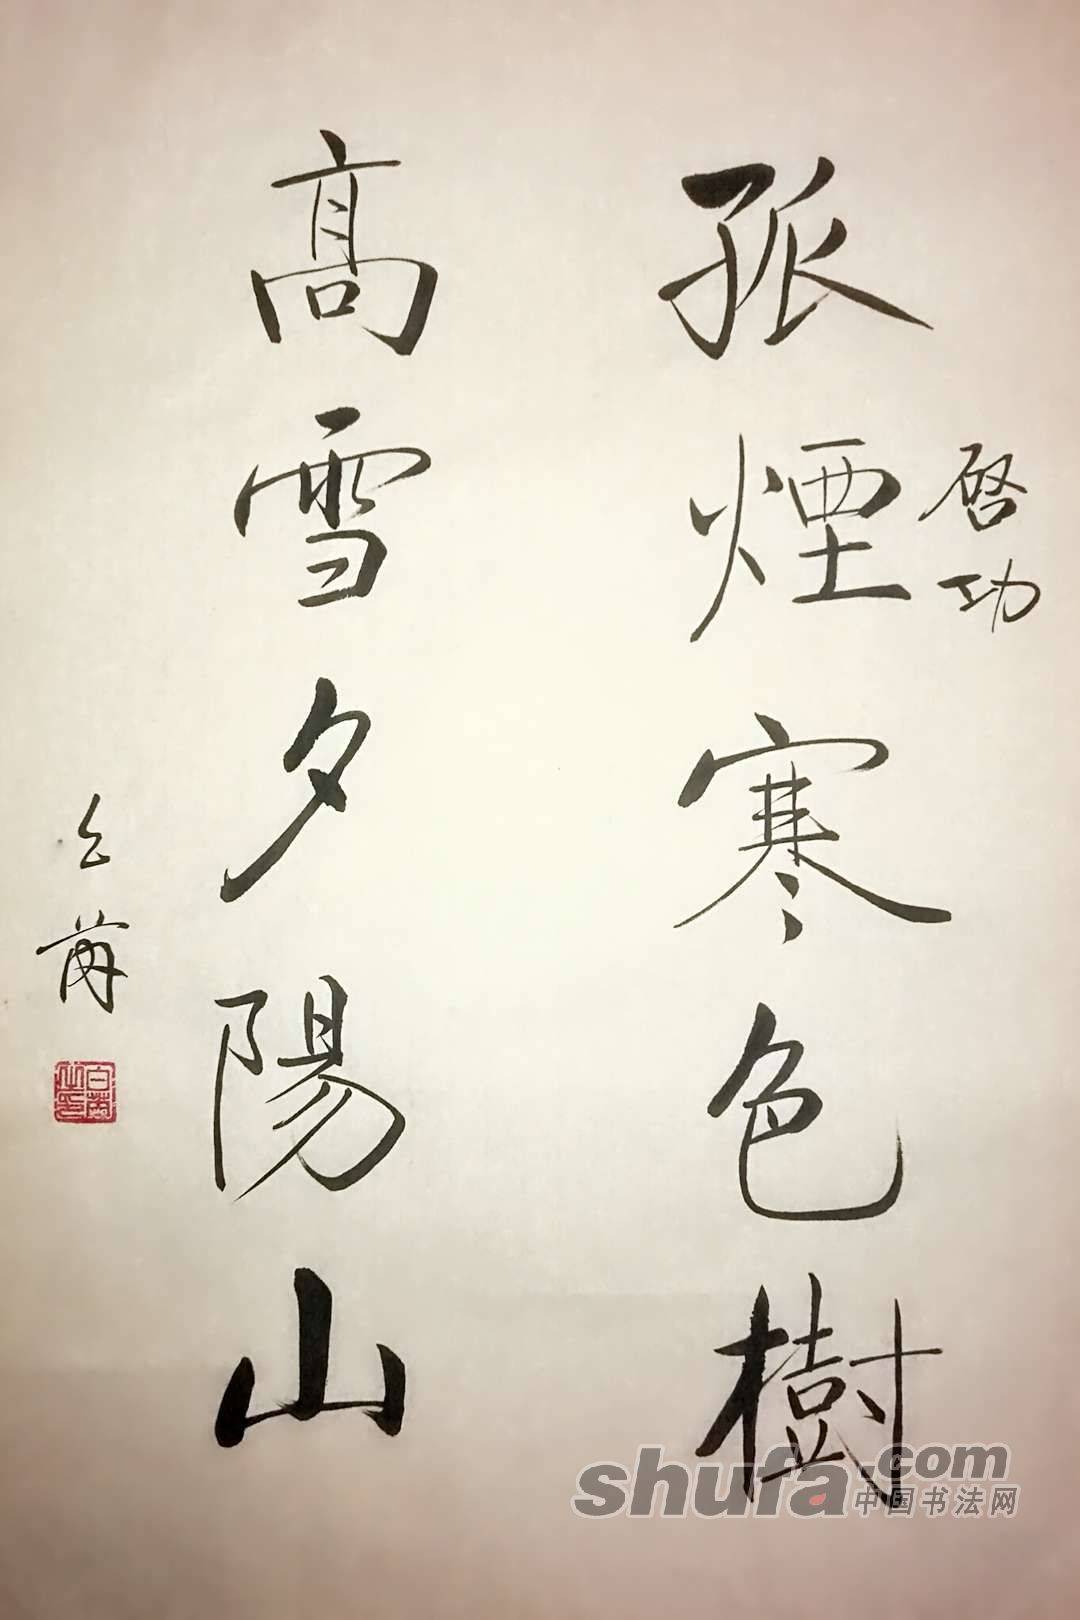 孤煙寒色樹
啓功
高雪夕陽山
shufa.com
中国书法网